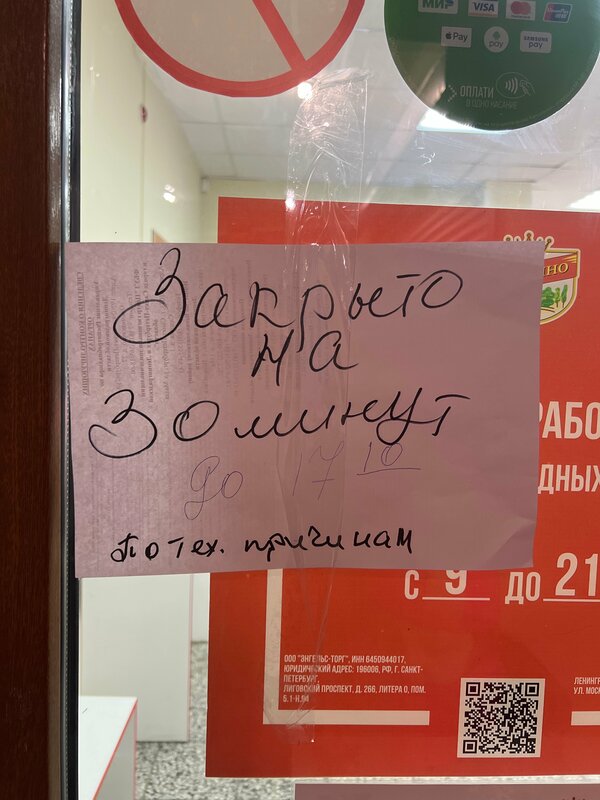 МИР VISA mastercard UnionPay
Apple Pay pay SAMSUNG pay
ОПЛАТИ
В ОДНО КАСАНИЕ
Закрыто
на
30 минут
До 17 10
По тех. причинам
РАБО
ДНЫХ
С 9 ДО 21
ООО "ЭНГЕЛЬС-ТОРГ", ИНН 6450944017,
ЮРИДИЧЕСКИЙ АДРЕС: 196006, РФ, Г. САНКТ-
ПЕТЕРБУРГ,
ЛИГОВСКИЙ ПРОСПЕКТ, Д. 266, ЛИТЕРА О, ПОМ.
6.1-Н.94
ЛЕНИНГР
УЛ. МОСК